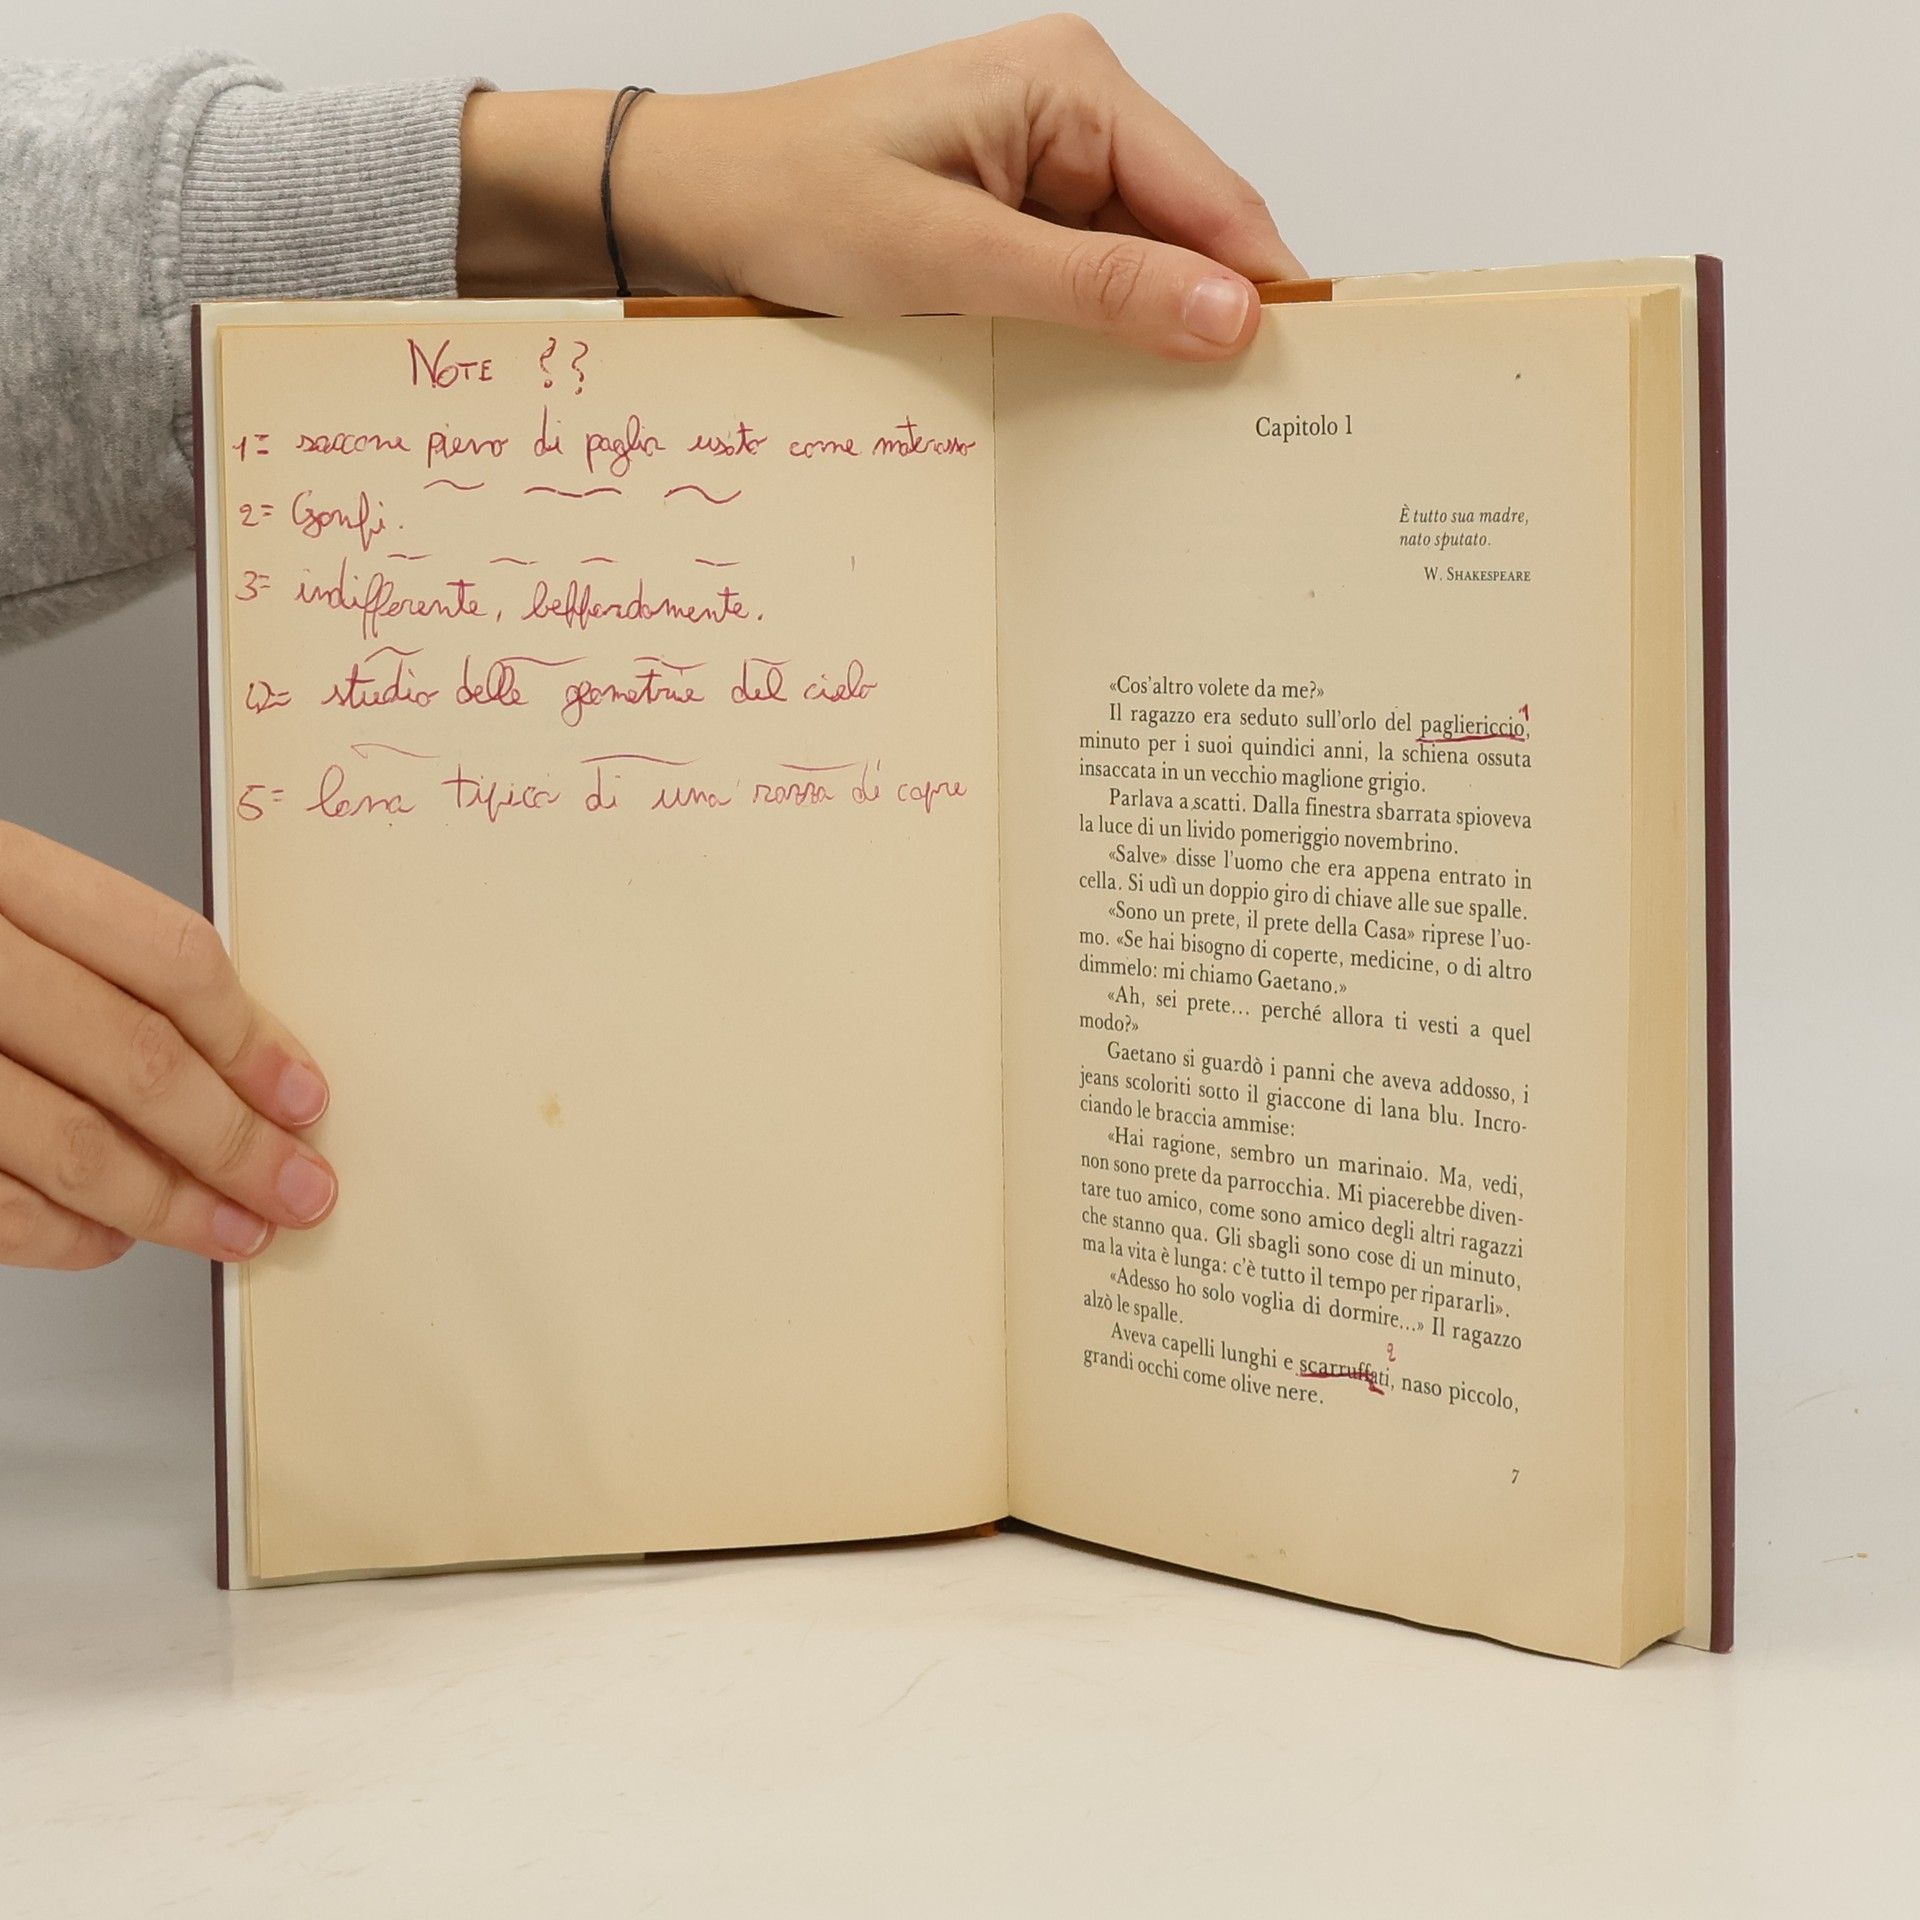 NOTE ??
1= saccone pieno di paglia usato come materasso
2= Gonfi.
3= indifferente, beffardamente.
4= studio delle geometrie del cielo
5= lana tipica di una razza di capre
Capitolo 1
È tutto sua madre,
nato sputato.
W. SHAKESPEARE
«Cos'altro volete da me?»
Il ragazzo era seduto sull'orlo del pagliericcio1,
minuto per i suoi quindici anni, la schiena ossuta
insaccata in un vecchio maglione grigio.
Parlava a scatti. Dalla finestra sbarrata spioveva
la luce di un livido pomeriggio novembrino.
«Salve» disse l'uomo che era appena entrato in
cella. Si udì un doppio giro di chiave alle sue spalle.
«Sono un prete, il prete della Casa» riprese l'uo-
mo. «Se hai bisogno di coperte, medicine, o di altro
dimmelo: mi chiamo Gaetano.»
«Ah, sei prete... perché allora ti vesti a quel
modo?»
Gaetano si guardò i panni che aveva addosso, i
jeans scoloriti sotto il giaccone di lana blu. Incro-
ciando le braccia ammise:
«Hai ragione, sembro un marinaio. Ma, vedi,
non sono prete da parrocchia. Mi piacerebbe diven-
tare tuo amico, come sono amico degli altri ragazzi
che stanno qua. Gli sbagli sono cose di un minuto,
ma la vita è lunga: c'è tutto il tempo per ripararli».
«Adesso ho solo voglia di dormire...» Il ragazzo
alzò le spalle.
Aveva capelli lunghi e scarruffati2, naso piccolo,
grandi occhi come olive nere.
7